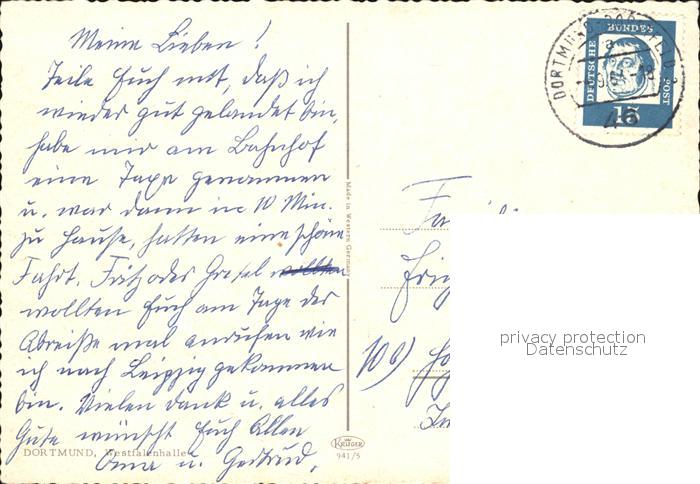 Meine Lieben!
Teile Euch mit, daß ich
wieder gut gelandet bin,
habe mir am Bahnhof
eine Taxe genommen
u. war dann in 10 Min.
zu Hause, hatten eine schöne
Fahrt. Fritz oder Gretel
wollten Euch am Tage der
Abreise mal anrufen wie
ich nach Leipzig gekommen
bin. Vielen Dank u. alles
Gute wünscht Euch Allen
Oma u. Gertrud.
DORTMUND, Westfalenhalle
KRÜGER
941/5
Made in Western Germany
DEUTSCHE BUNDESPOST
15
DORTMUND
46
100)
privacy protection
Datenschutz